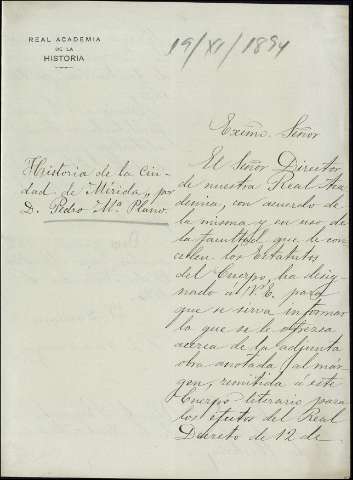 REAL ACADEMIA
DE LA
HISTORIA
19/XI/1894
Excmo. Señor
Historia de la Ciu-
dad de Mérida, por
D. Pedro Mª Plano.
El Señor Director
de nuestra Real Aca-
demia, con acuerdo de
la misma y en uso de
la facultad que le con-
ceden los Estatutos
del Cuerpo, ha desig-
nado á V.E. para
que se sirva informar
lo que se le ofrezca
acerca de la adjunta
obra anotada al már-
gen, remitida á este
Cuerpo literario para
los efectos del Real
Decreto de 12 de